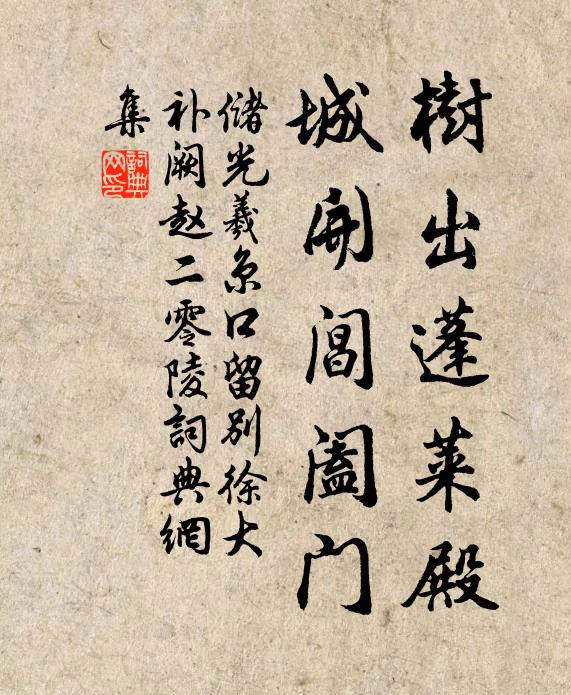 樹出蓬萊殿
城開閶闔門
儲光羲京口留別徐大
补阙赵二零陵詞典網
集
詞典網印